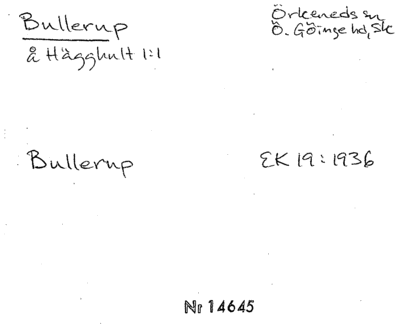 Bullerup
å Hägghult 1:1
Örkeneds sn
Ö. Göinge hd, Sk
Bullerup
EK 19:1936
Nr 14645